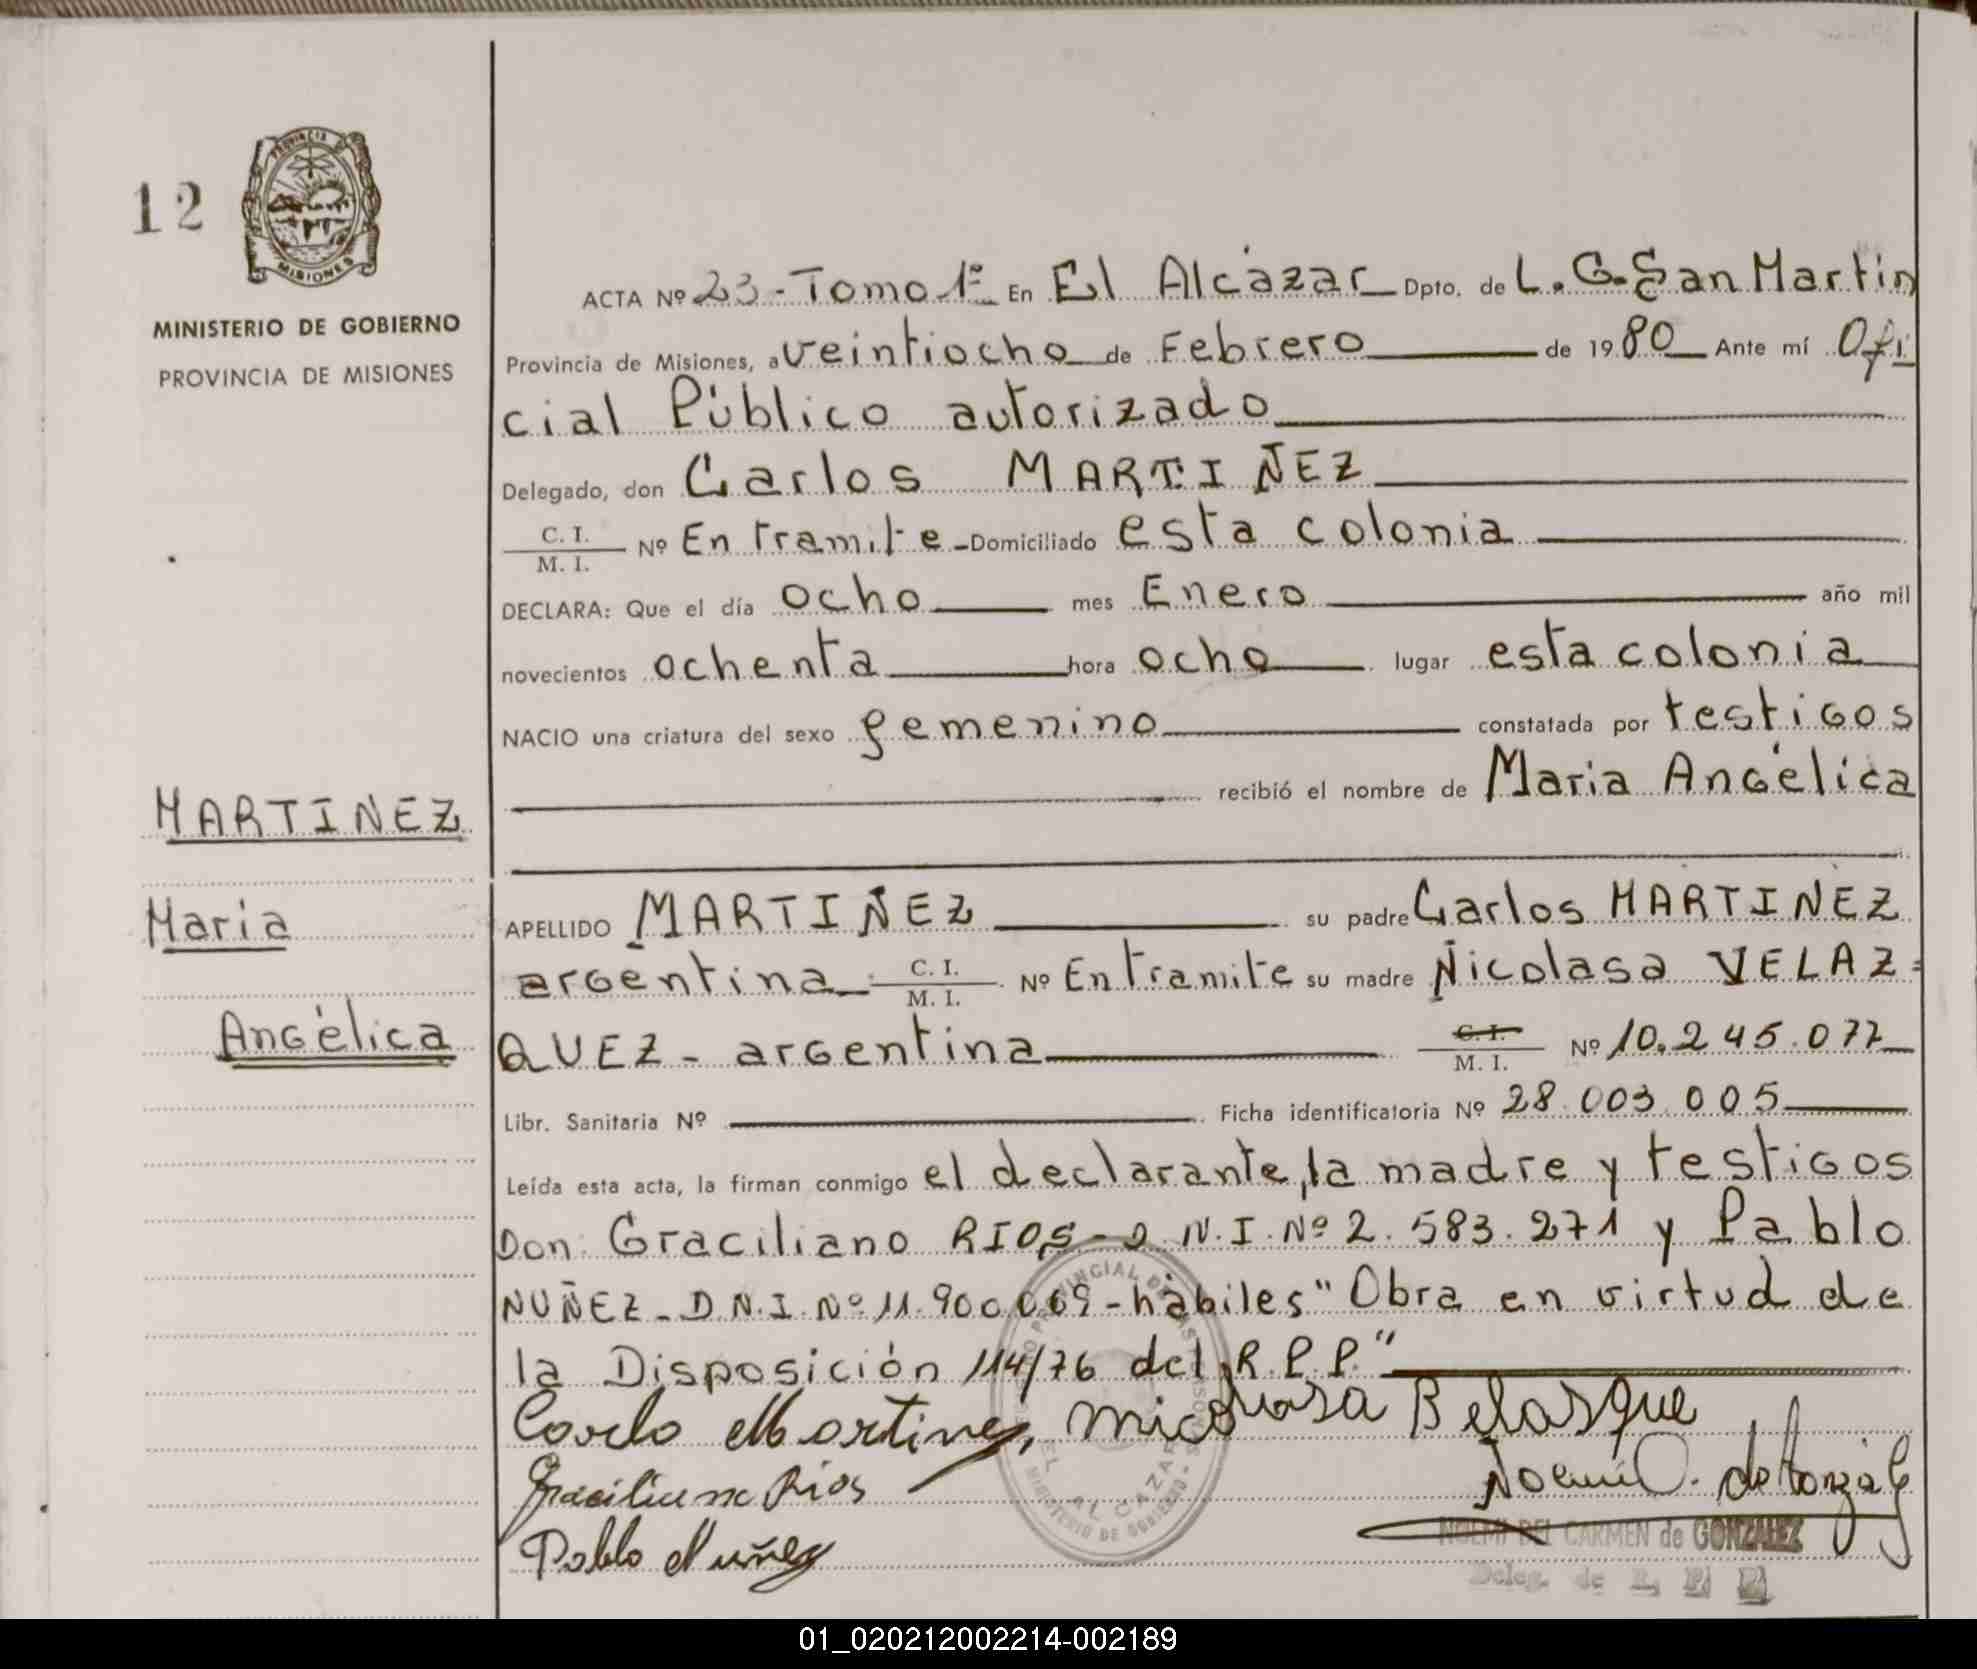 12
PROVINCIA DE
MISIONES
MINISTERIO DE GOBIERNO
PROVINCIA DE MISIONES
MARTINEZ
Maria
Angélica
ACTA Nº 23-Tomo 1º En El Alcázar Dpto. de L. G. San Martin
Provincia de Misiones, a veintiocho de Febrero de 1980 Ante mí Ofi
cial Público autorizado
Delegado, don Carlos MARTIÑEZ
C. I.
M. I. Nº En tramite - Domiciliado esta colonia
DECLARA: Que el día ocho mes Enero año mil
novecientos ochenta hora ocho lugar esta colonia
NACIO una criatura del sexo femenino constatada por testigos
recibió el nombre de Maria Angélica
APELLIDO MARTIÑEZ su padre Carlos MARTINEZ
argentina - C. I.
M. I. Nº En tramite su madre Nicolasa VELAZ=
QUEZ - argentina C. I.
M. I. Nº 10.245.077
Libr. Sanitaria Nº Ficha identificatoria Nº 28.003.005
Leída esta acta, la firman conmigo el declarante, la madre y testigos
Don Graciliano RIOS - D.N.I. Nº 2.583.271 y Pablo
NUÑEZ - D.N.I. Nº 11.900.069 - hábiles "Obra en virtud de
la Disposición 114/76 del R.P.P."
Carlo Martinez, Nicolasa Belasque
Graciliano Rios
Pablo Nuñez
Noemi C. de Gonzalez
NOEMI DEL CARMEN de GONZALEZ
Deleg. de R. P. P.
EL ALCAZAR
MINISTERIO DE GOBIERNO
01_020212002214-002189